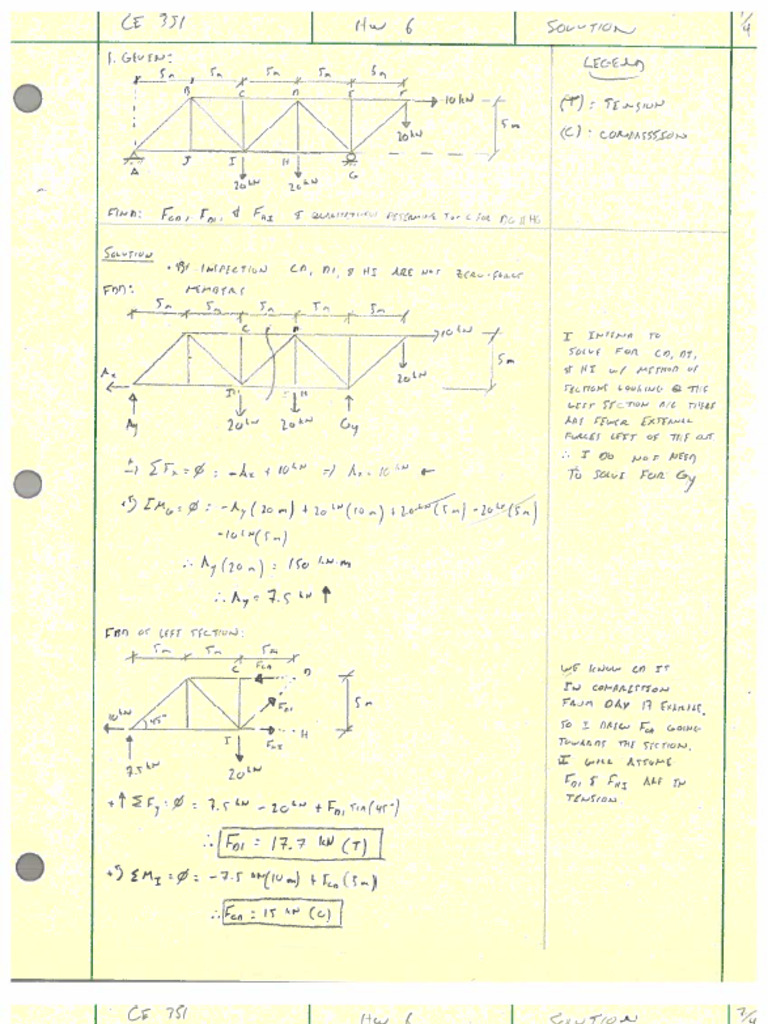 CE 351
HW 6
SOLUTION
1/4
1. GIVEN:
5m 5m 5m 5m 5m
B C D E F
10 kN
20 kN
5m
A J I H G
20 kN 20 kN
FIND: FCD, FDI, & FHI & QUALITATIVELY DETERMINE T OR C FOR
LEGEND
(T): TENSION
(C): COMPRESSION
SOLUTION
• BY INSPECTION CD, DI, & HI ARE NOT ZERO-FORCE
MEMBERS
FBD:
5m 5m 5m 5m 5m
C D
10 kN
5m
20 kN
Ax
I H
Ay 20 kN 20 kN Gy
I INTEND TO
SOLVE FOR CD, DI,
& HI W/ METHOD OF
SECTIONS LOOKING @ THE
LEFT SECTION B/C THERE
ARE FEWER EXTERNAL
FORCES LEFT OF THE CUT
∴ I DO NOT NEED
TO SOLVE FOR Gy
+→ ΣFx = Ø = -Ax + 10 kN ⇒ Ax = 10 kN ←
+↺ ΣMG = Ø = -Ay(20 m) + 20 kN(10 m) + 20 kN(5 m) - 20 kN(5 m)
-10 kN(5 m)
∴ Ay(20 m) = 150 kN·m
∴ Ay = 7.5 kN ↑
FBD OF LEFT SECTION:
5m 5m 5m
C FCD D
5m
10 kN
45°
FDI
I FHI H
7.5 kN
20 kN
WE KNOW CD IS
IN COMPRESSION
FROM DAY 17 EXAMPLE,
SO I DREW FCD GOING
TOWARDS THE SECTION.
I WILL ASSUME
FDI & FHI ARE IN
TENSION.
+↑ ΣFy = Ø = 7.5 kN - 20 kN + FDI sin(45°)
∴ FDI = 17.7 kN (T)
+↺ ΣMI = Ø = -7.5 kN(10 m) + FCD(5 m)
∴ FCD = 15 kN (C)
CE 351
HW 6
SOLUTION
2/4